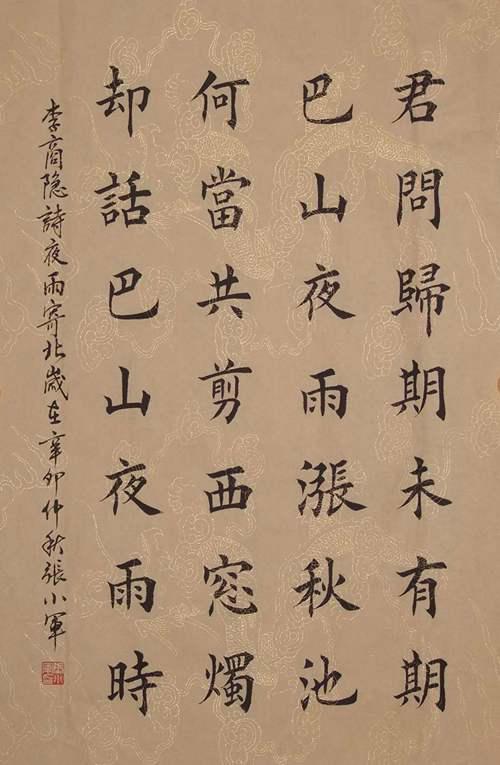 君問歸期未有期
巴山夜雨漲秋池
何當共剪西窓燭
却話巴山夜雨時
李商隐詩夜雨寄北歲在辛卯仲秋張小軍